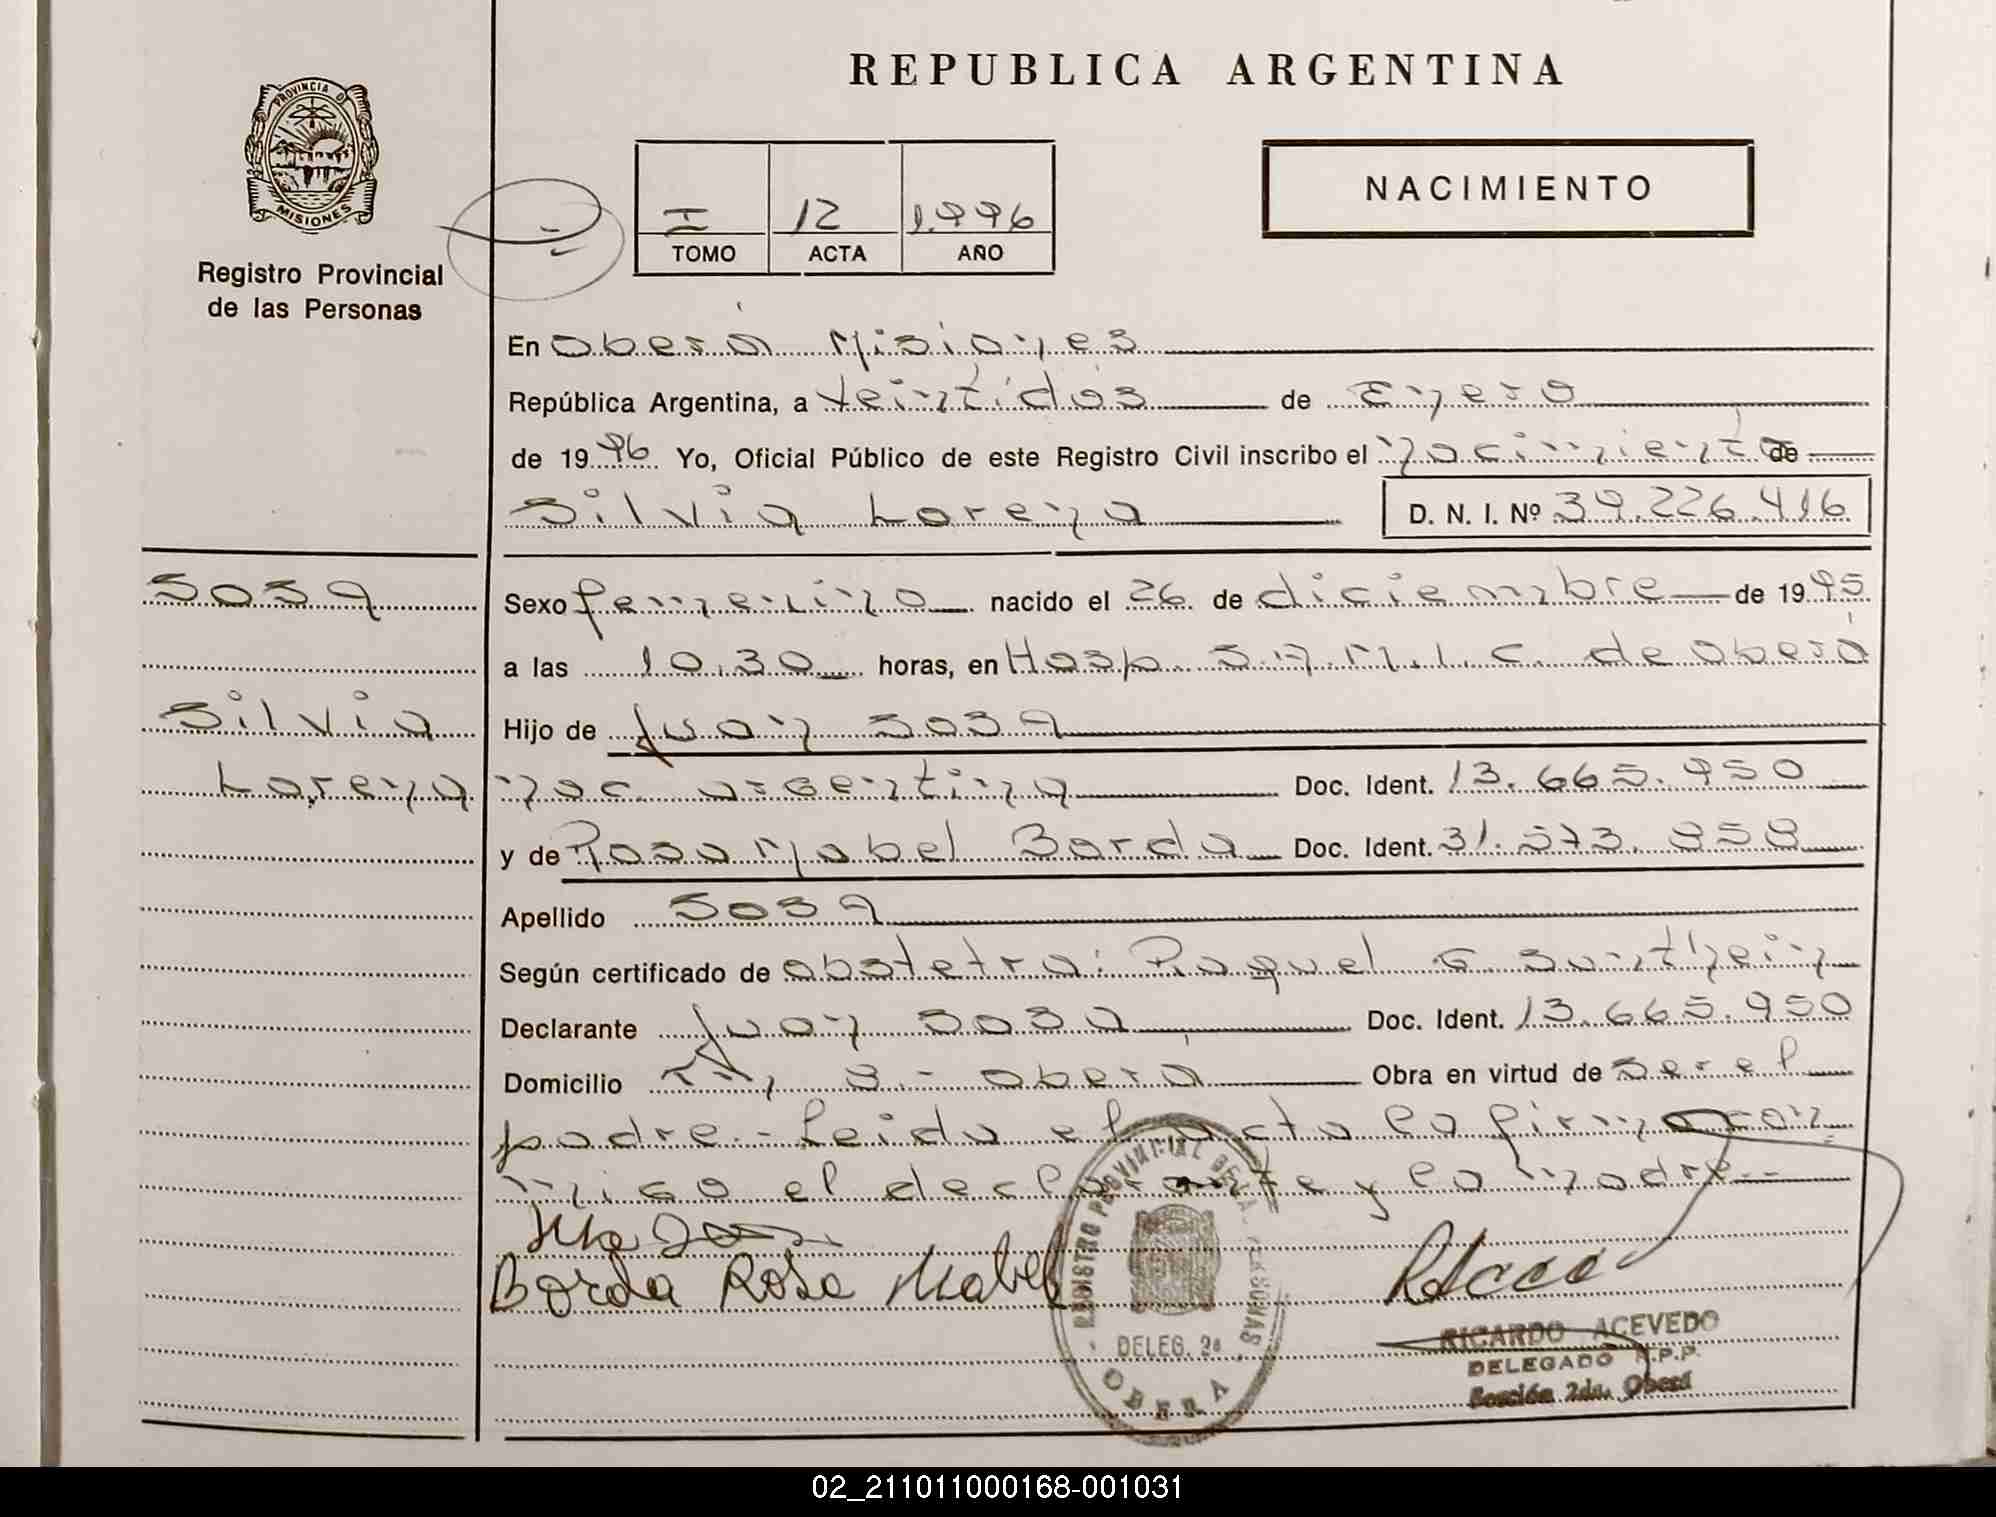 REPUBLICA ARGENTINA
PROVINCIA DE
MISIONES
Registro Provincial
de las Personas
I 12 1.996
TOMO ACTA AÑO
NACIMIENTO
En Oberá Misiones
República Argentina, a veintidós de Enero
de 1996 Yo, Oficial Público de este Registro Civil inscribo el nacimiento de
Silvia Lorena D. N. I. Nº 39.226.416
Sosa
Silvia
Lorena
Sexo femenino nacido el 26 de diciembre de 1995
a las 10.30 horas, en Hosp. S.A.M.I.C. de Oberá
Hijo de Juan Sosa
nac. argentina Doc. Ident. 13.665.950
y de Rosa Mabel Borda Doc. Ident. 31.573.858
Apellido Sosa
Según certificado de obstetra: Raquel G. Sonthein
Declarante Juan Sosa Doc. Ident. 13.665.950
Domicilio 8.- Oberá Obra en virtud de ser el
padre.- Leida el acta la firman con
migo el declarante y la madre--
Borda Rosa Mabel
REGISTRO PROVINCIAL DE LAS PERSONAS
DELEG. 2a
OBERA
RICARDO ACEVEDO
DELEGADO R.P.P.
Sección 2da. Oberá
02_211011000168-001031